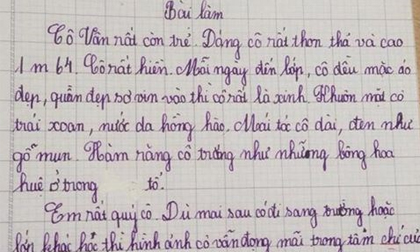 Bài làm
Cô Vân rất còn trẻ. Dáng cô rất thon thả và cao
1m 64. Cô rất hiền. Mỗi ngày đến lớp, cô đều mặc áo
đẹp, quần đẹp sơ vin vào thì cô rất là xinh. Khuôn mặt cô
trái xoan, nước da hồng hào. Mái tóc cô dài, đen như
gỗ mun. Hàm răng cô trắng như những bông hoa
huệ ở trong tổ.
Em rất quý cô. Dù mai sau có đi sang trường hoặc
lớn khác thì hình ảnh cô vẫn đọng mãi trong tâm chí của